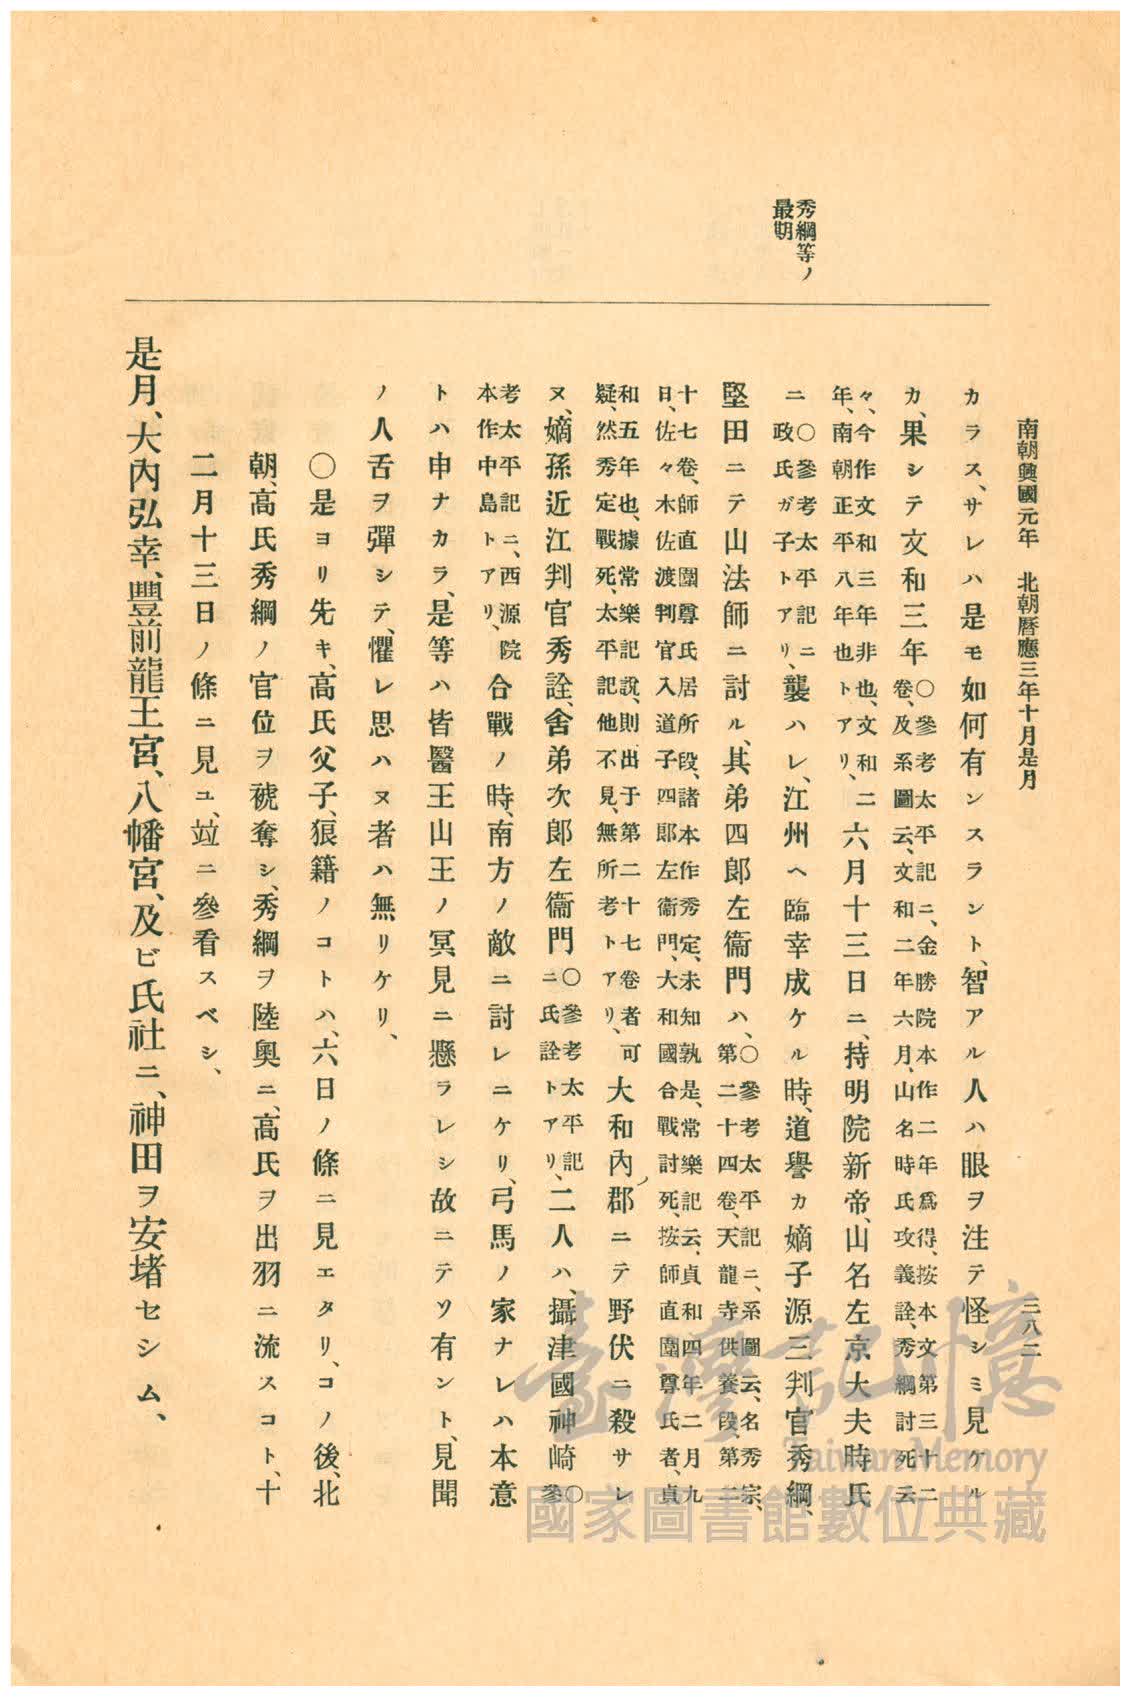 南朝興國元年　北朝曆應三年十月是月
三八二
秀綱等ノ
最期
カラス、サレハ是モ如何有ンスラント、智アル人ハ眼ヲ注テ怪シミ見ケル
カ、果シテ文和三年
〇參考太平記ニ、金勝院本作二年爲得、按本文第三十二
卷、及系圖云、文和二年六月、山名時氏攻義詮、秀綱討死云
々、今作文和三年非也、文和二
年、南朝正平八年也トアリ、
六月十三日ニ、持明院新帝、山名左京大夫時氏
ニ
〇參考太平記ニ
政氏ガ子トアリ、
襲ハレ、江州ヘ臨幸成ケル時、道譽カ嫡子源三判官秀綱、
堅田ニテ山法師ニ討ル、其弟四郎左衞門ハ、
〇參考太平記ニ、系圖云、名秀宗、
第二十四卷、天龍寺供養段、第二
十七卷、師直圍尊氏居所段、諸本作秀定、未知孰是、常樂記云、貞和四年二月九
日、佐々木佐渡判官入道子四郎左衞門、大和國合戰討死、按師直圍尊氏者、貞
和五年也、據常樂記說、則出于第二十七卷者可
疑、然秀定戰死、太平記他不見、無所考トアリ、
大和內ノ郡ニテ野伏ニ殺サレ
ヌ、嫡孫近江判官秀詮、舍弟次郎左衞門
〇參考太平記
ニ氏詮トアリ、
二人ハ、攝津國神崎
〇
參
考太平記ニ、西源院
本作中島トアリ、
合戰ノ時、南方ノ敵ニ討レニケリ、弓馬ノ家ナレハ本意
トハ申ナカラ、是等ハ皆醫王山王ノ冥見ニ懸ラレシ故ニテソ有ント、見聞
ノ人舌ヲ彈シテ、懼レ思ハヌ者ハ無リケリ、
〇是ヨリ先キ、高氏父子、狼籍ノコトハ、六日ノ條ニ見エタリ、コノ後、北
朝、高氏秀綱ノ官位ヲ褫奪シ、秀綱ヲ陸奧ニ、高氏ヲ出羽ニ流スコト、十
二月十三日ノ條ニ見ユ、竝ニ參看スベシ、
是月、大內弘幸、豐前龍王宮、八幡宮、及ビ氏社ニ、神田ヲ安堵セシム、
臺灣記憶
Taiwan Memory
國家圖書館數位典藏